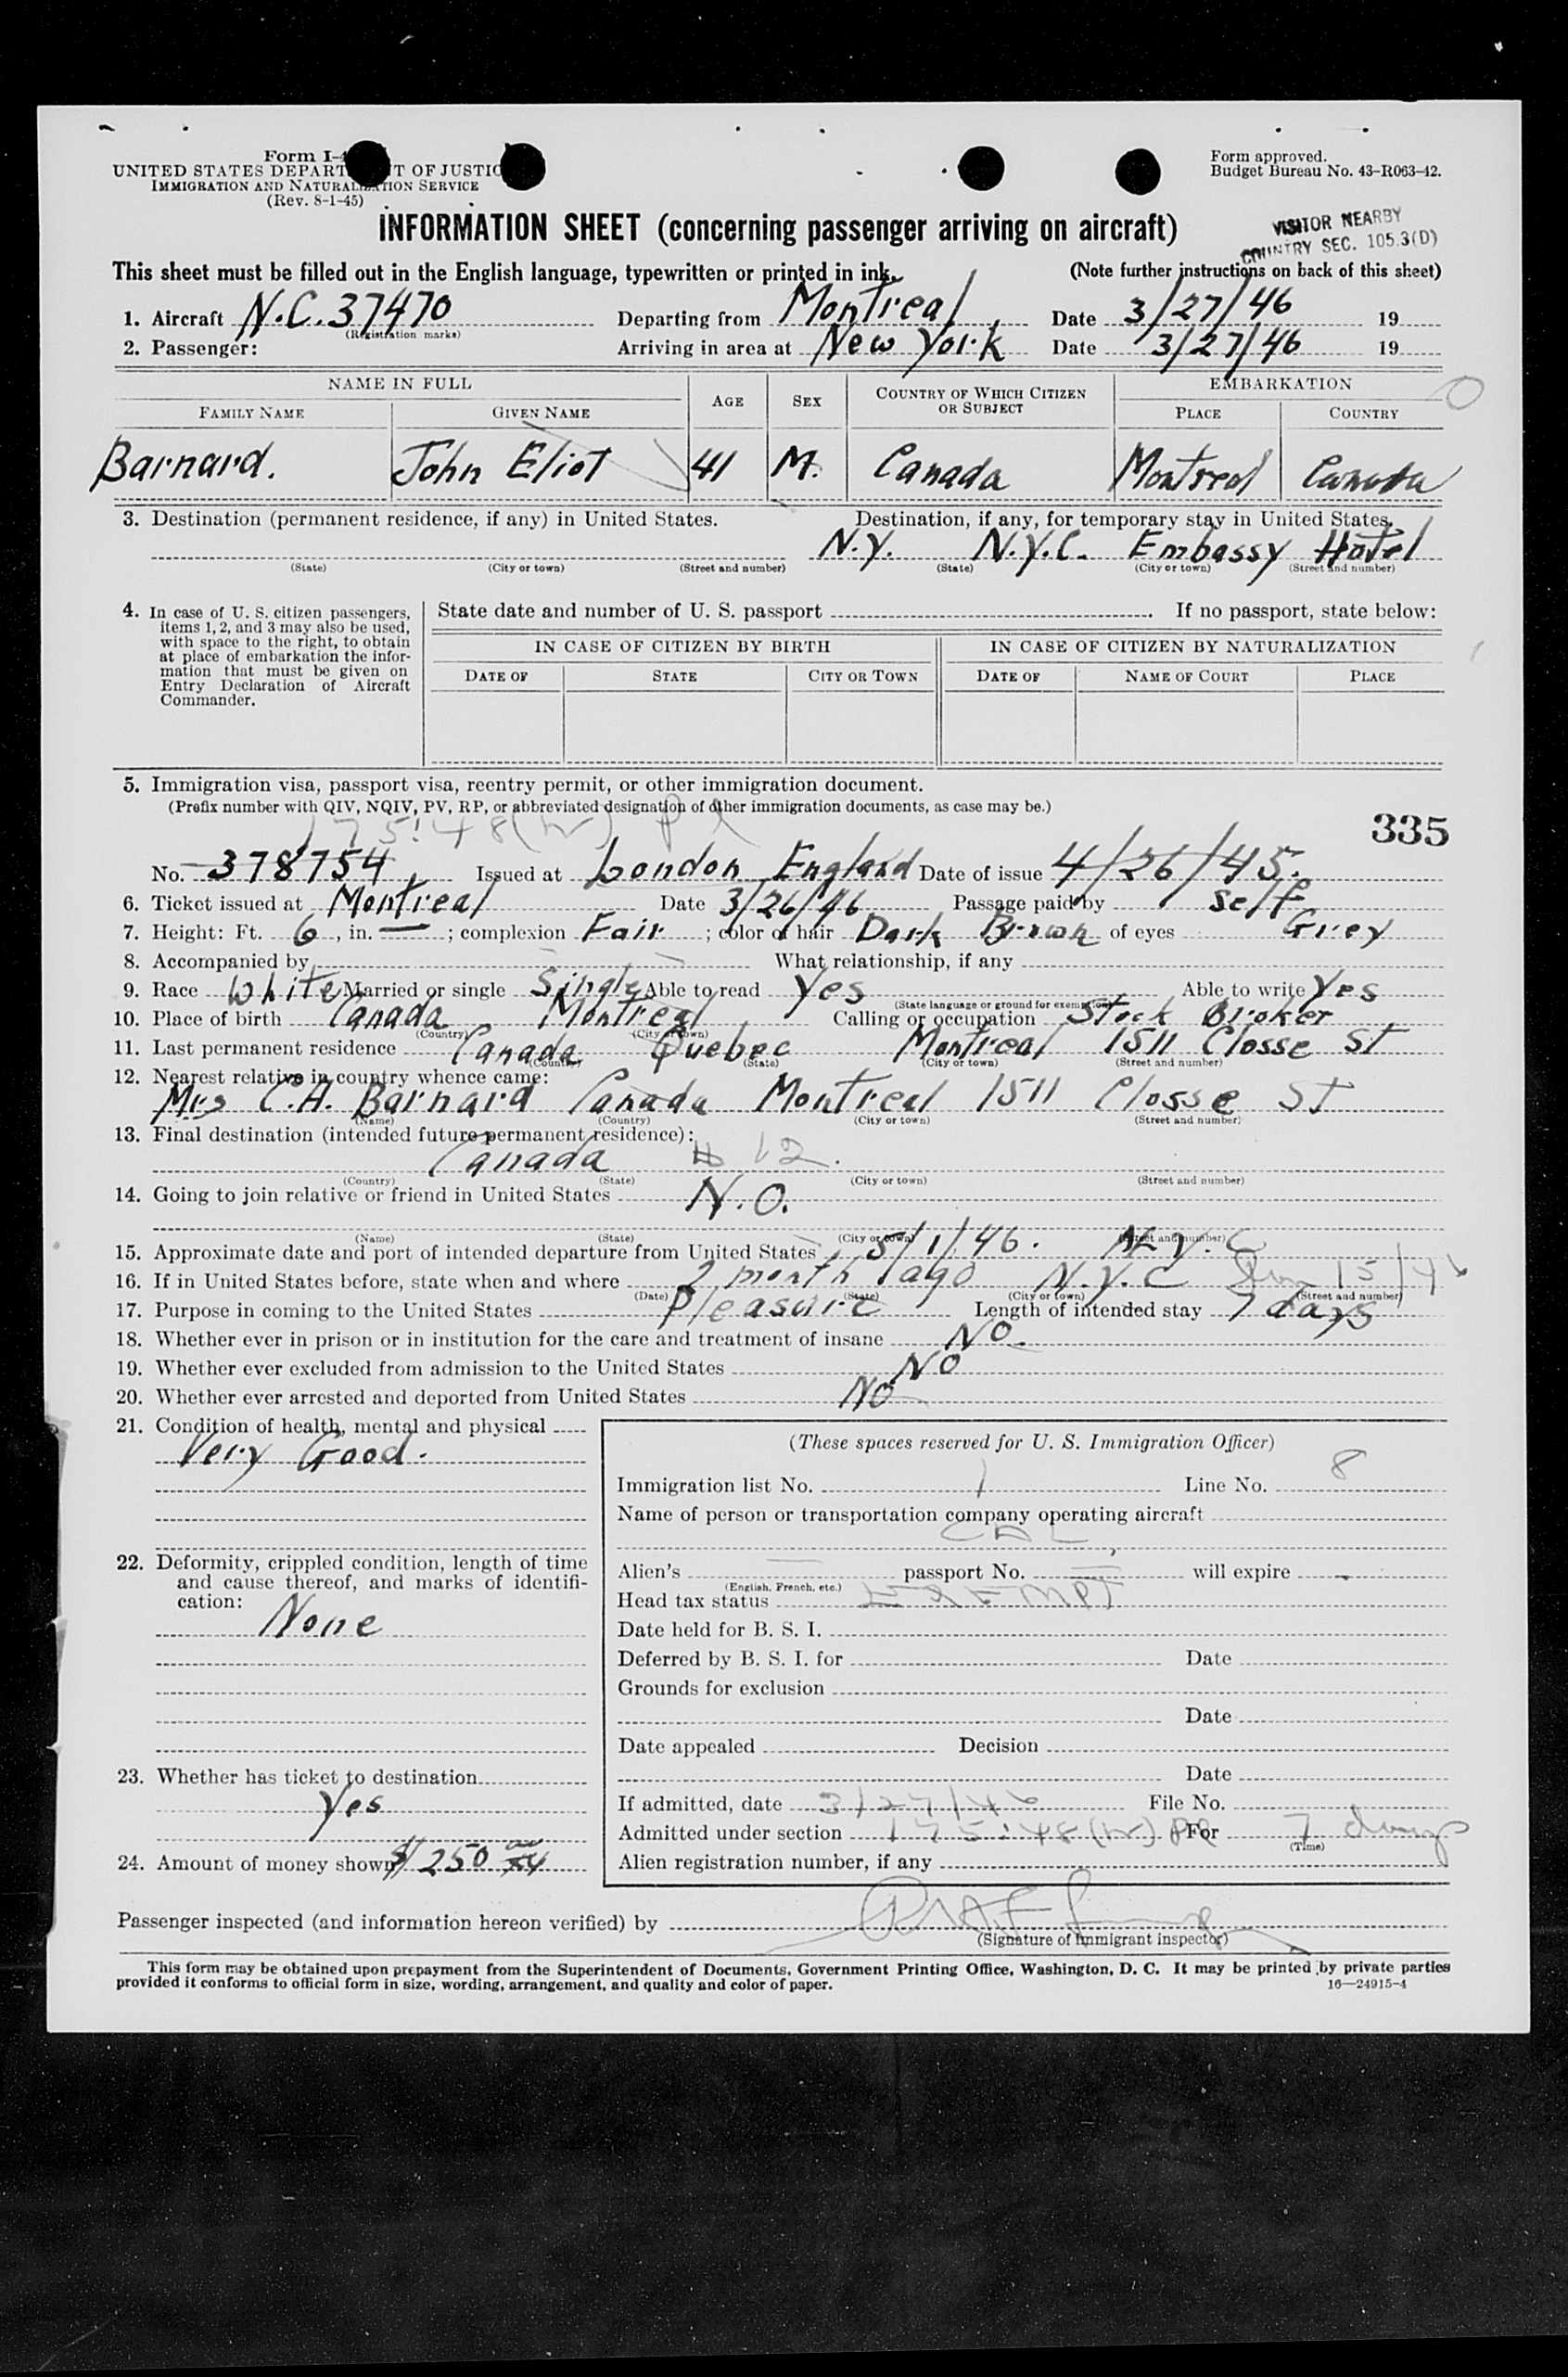 Form I-4
UNITED STATES DEPARTMENT OF JUSTICE
IMMIGRATION AND NATURALIZATION SERVICE
(Rev. 8-1-45)
Form approved.
Budget Bureau No. 43-R063-42.
INFORMATION SHEET (concerning passenger arriving on aircraft)
VISITOR NEARBY
COUNTRY SEC. 105.3(D)
This sheet must be filled out in the English language, typewritten or printed in ink. (Note further instructions on back of this sheet)
1. Aircraft N.C. 37470 Departing from Montreal Date 3/27/46 19
(Registration marks)
2. Passenger: Arriving in area at New York Date 3/27/46 19
NAME IN FULL AGE SEX COUNTRY OF WHICH CITIZEN OR SUBJECT EMBARKATION
FAMILY NAME GIVEN NAME PLACE COUNTRY
Barnard. John Eliot 41 M. Canada Montreal Canada
3. Destination (permanent residence, if any) in United States. Destination, if any, for temporary stay in United States.
N.Y. N.Y.C. Embassy Hotel
(State) (City or town) (Street and number) (State) (City or town) (Street and number)
4. In case of U. S. citizen passengers, items 1, 2, and 3 may also be used, with space to the right, to obtain at place of embarkation the information that must be given on Entry Declaration of Aircraft Commander.
State date and number of U. S. passport . If no passport, state below:
IN CASE OF CITIZEN BY BIRTH IN CASE OF CITIZEN BY NATURALIZATION
DATE OF STATE CITY OR TOWN DATE OF NAME OF COURT PLACE
5. Immigration visa, passport visa, reentry permit, or other immigration document.
(Prefix number with QIV, NQIV, PV, RP, or abbreviated designation of other immigration documents, as case may be.)
335
No. 378754 Issued at London England Date of issue 4/26/45.
6. Ticket issued at Montreal Date 3/26/46 Passage paid by Self
7. Height: Ft. 6, in. — ; complexion Fair ; color of hair Dark Brown of eyes Grey
8. Accompanied by What relationship, if any
9. Race White Married or single Single Able to read Yes Able to write Yes
(State language or ground for exemption)
10. Place of birth Canada Montreal Calling or occupation Stock Broker
(Country) (City or town)
11. Last permanent residence Canada Quebec Montreal 1511 Closse St
(Country) (State) (City or town) (Street and number)
12. Nearest relative in country whence came:
Mrs C.H. Barnard Canada Montreal 1511 Closse St
(Name) (Country) (City or town) (Street and number)
13. Final destination (intended future permanent residence):
Canada 12.
(Country) (State) (City or town) (Street and number)
14. Going to join relative or friend in United States N.O.
(Name) (State) (City or town) (Street and number)
15. Approximate date and port of intended departure from United States 5/1/46. N.Y.C
16. If in United States before, state when and where 2 month ago N.Y.C
(Date) (State) (City or town) (Street and number)
17. Purpose in coming to the United States Pleasure Length of intended stay 7 days
18. Whether ever in prison or in institution for the care and treatment of insane No.
19. Whether ever excluded from admission to the United States NO
20. Whether ever arrested and deported from United States NO
21. Condition of health, mental and physical
Very Good.
(These spaces reserved for U. S. Immigration Officer)
Immigration list No. 1 Line No. 8
Name of person or transportation company operating aircraft
22. Deformity, crippled condition, length of time and cause thereof, and marks of identification:
None
Alien's passport No. will expire
(English, French, etc.)
Head tax status EXEMPT
Date held for B. S. I.
Deferred by B. S. I. for Date
Grounds for exclusion
Date
Date appealed Decision
23. Whether has ticket to destination
Yes
Date
If admitted, date 3/27/46 File No.
Admitted under section 175:48(W) Pl For 7 days
(Time)
24. Amount of money shown $250
Alien registration number, if any
Passenger inspected (and information hereon verified) by
(Signature of immigrant inspector)
This form may be obtained upon prepayment from the Superintendent of Documents, Government Printing Office, Washington, D. C. It may be printed by private parties
provided it conforms to official form in size, wording, arrangement, and quality and color of paper. 16—24915-4